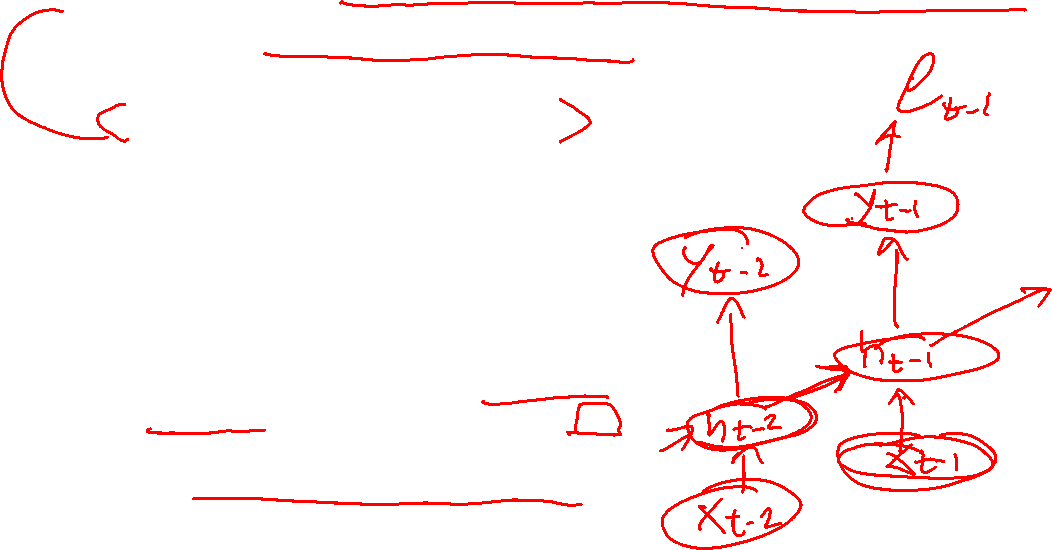 l_{t-1}
y_{t-1}
y_{t-2}
h_{t-1}
h_{t-2}
x_{t-1}
x_{t-2}